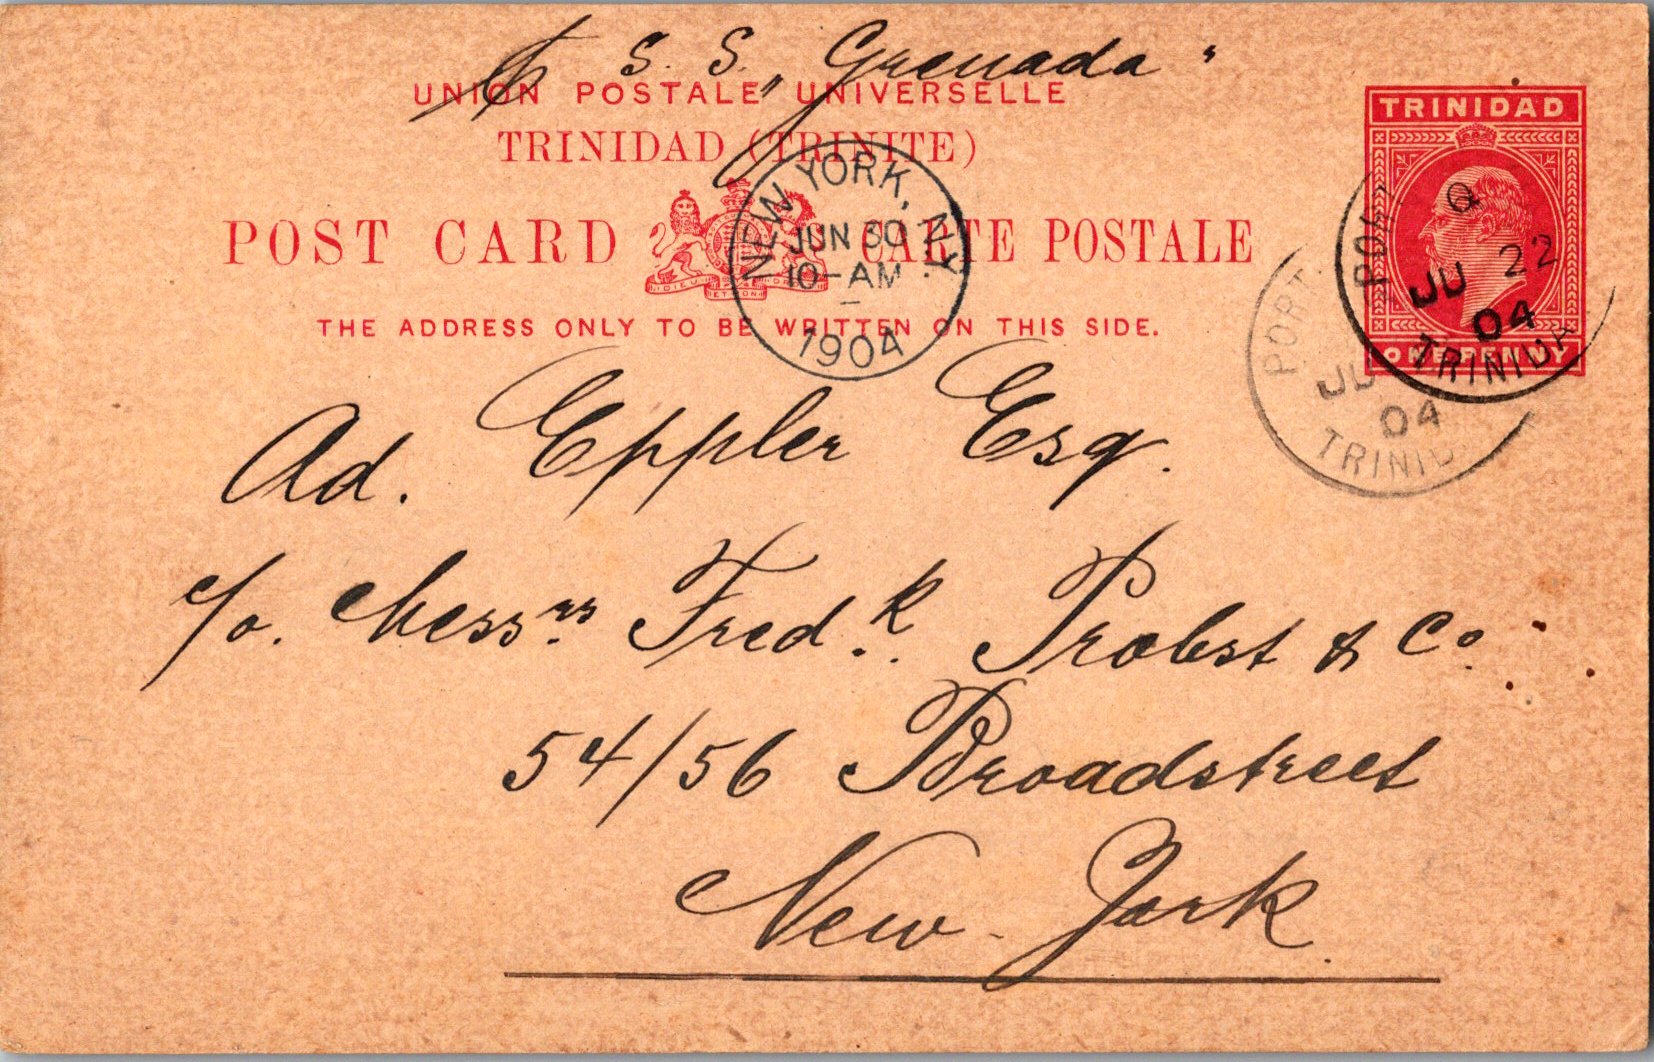 S. S. „Grenada"
UNION POSTALE UNIVERSELLE
TRINIDAD (TRINITE)
POST CARD CARTE POSTALE
THE ADDRESS ONLY TO BE WRITTEN ON THIS SIDE.
TRINIDAD
ONE PENNY
NEW YORK, N.Y.
JUN 30
10-AM
1904
Q
JU 22
04
TRINIDA
PORT
JU
04
TRINID
Ad. Eppler Esq.
c/o. Messrs. Fredk. Probst & Co
54/56 Broadstreet
New York.